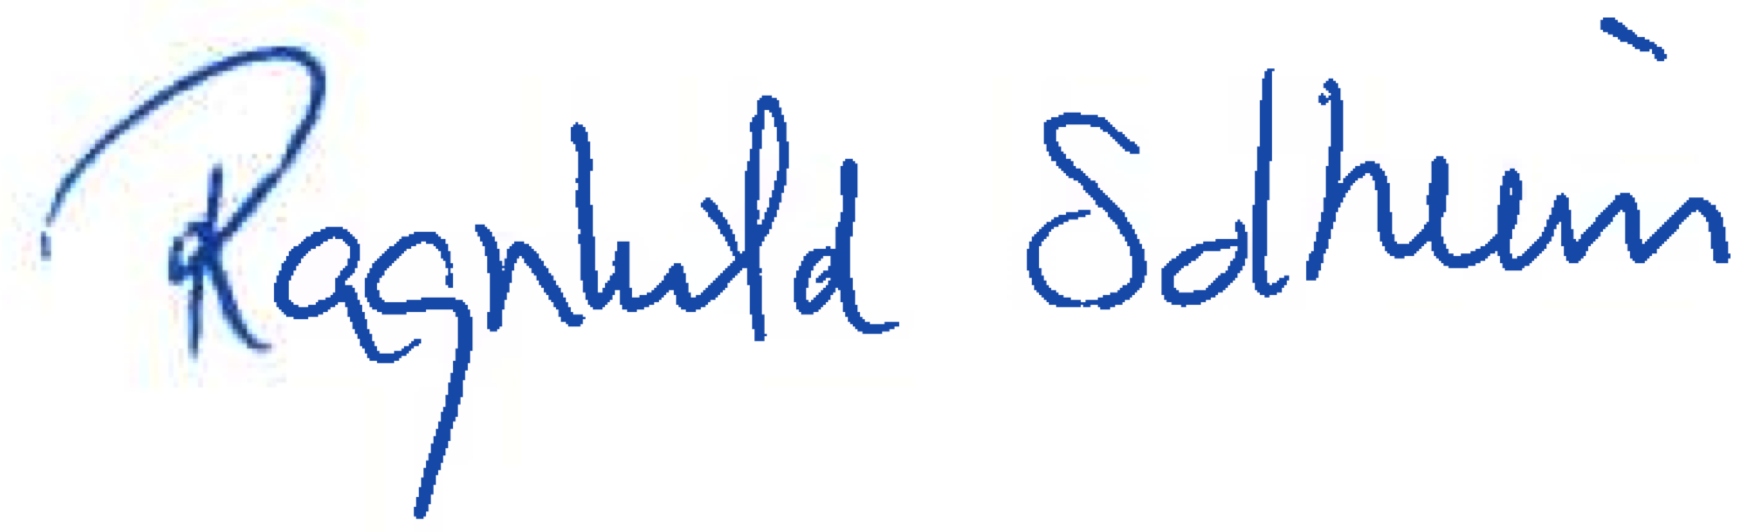 Ragnhild Solheim